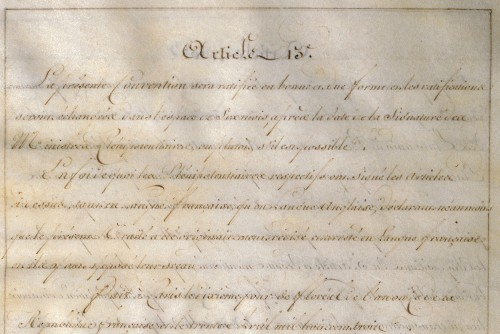 Article 13.e
La présente Convention sera ratifiée en bonne et due forme et les ratifications
seront échangées dans l'espace de Six mois après la date de la Signature des
Ministres Plénipotentiaires, ou plutôt, s'il est possible.
En foi de quoi les Plénipotentiaires respectifs ont signé les Articles
ci-dessus, tant en Langue française, qu'en Langue Anglaise, déclarant néanmoins
que le présent Traité a été originairement rédigé et arrêté en Langue française,
et ils y ont apposé leur sceau.
fait à Paris le dixième jour de floréal de l'an onze de la
République française, et le trente Avril mil huit cent trois.